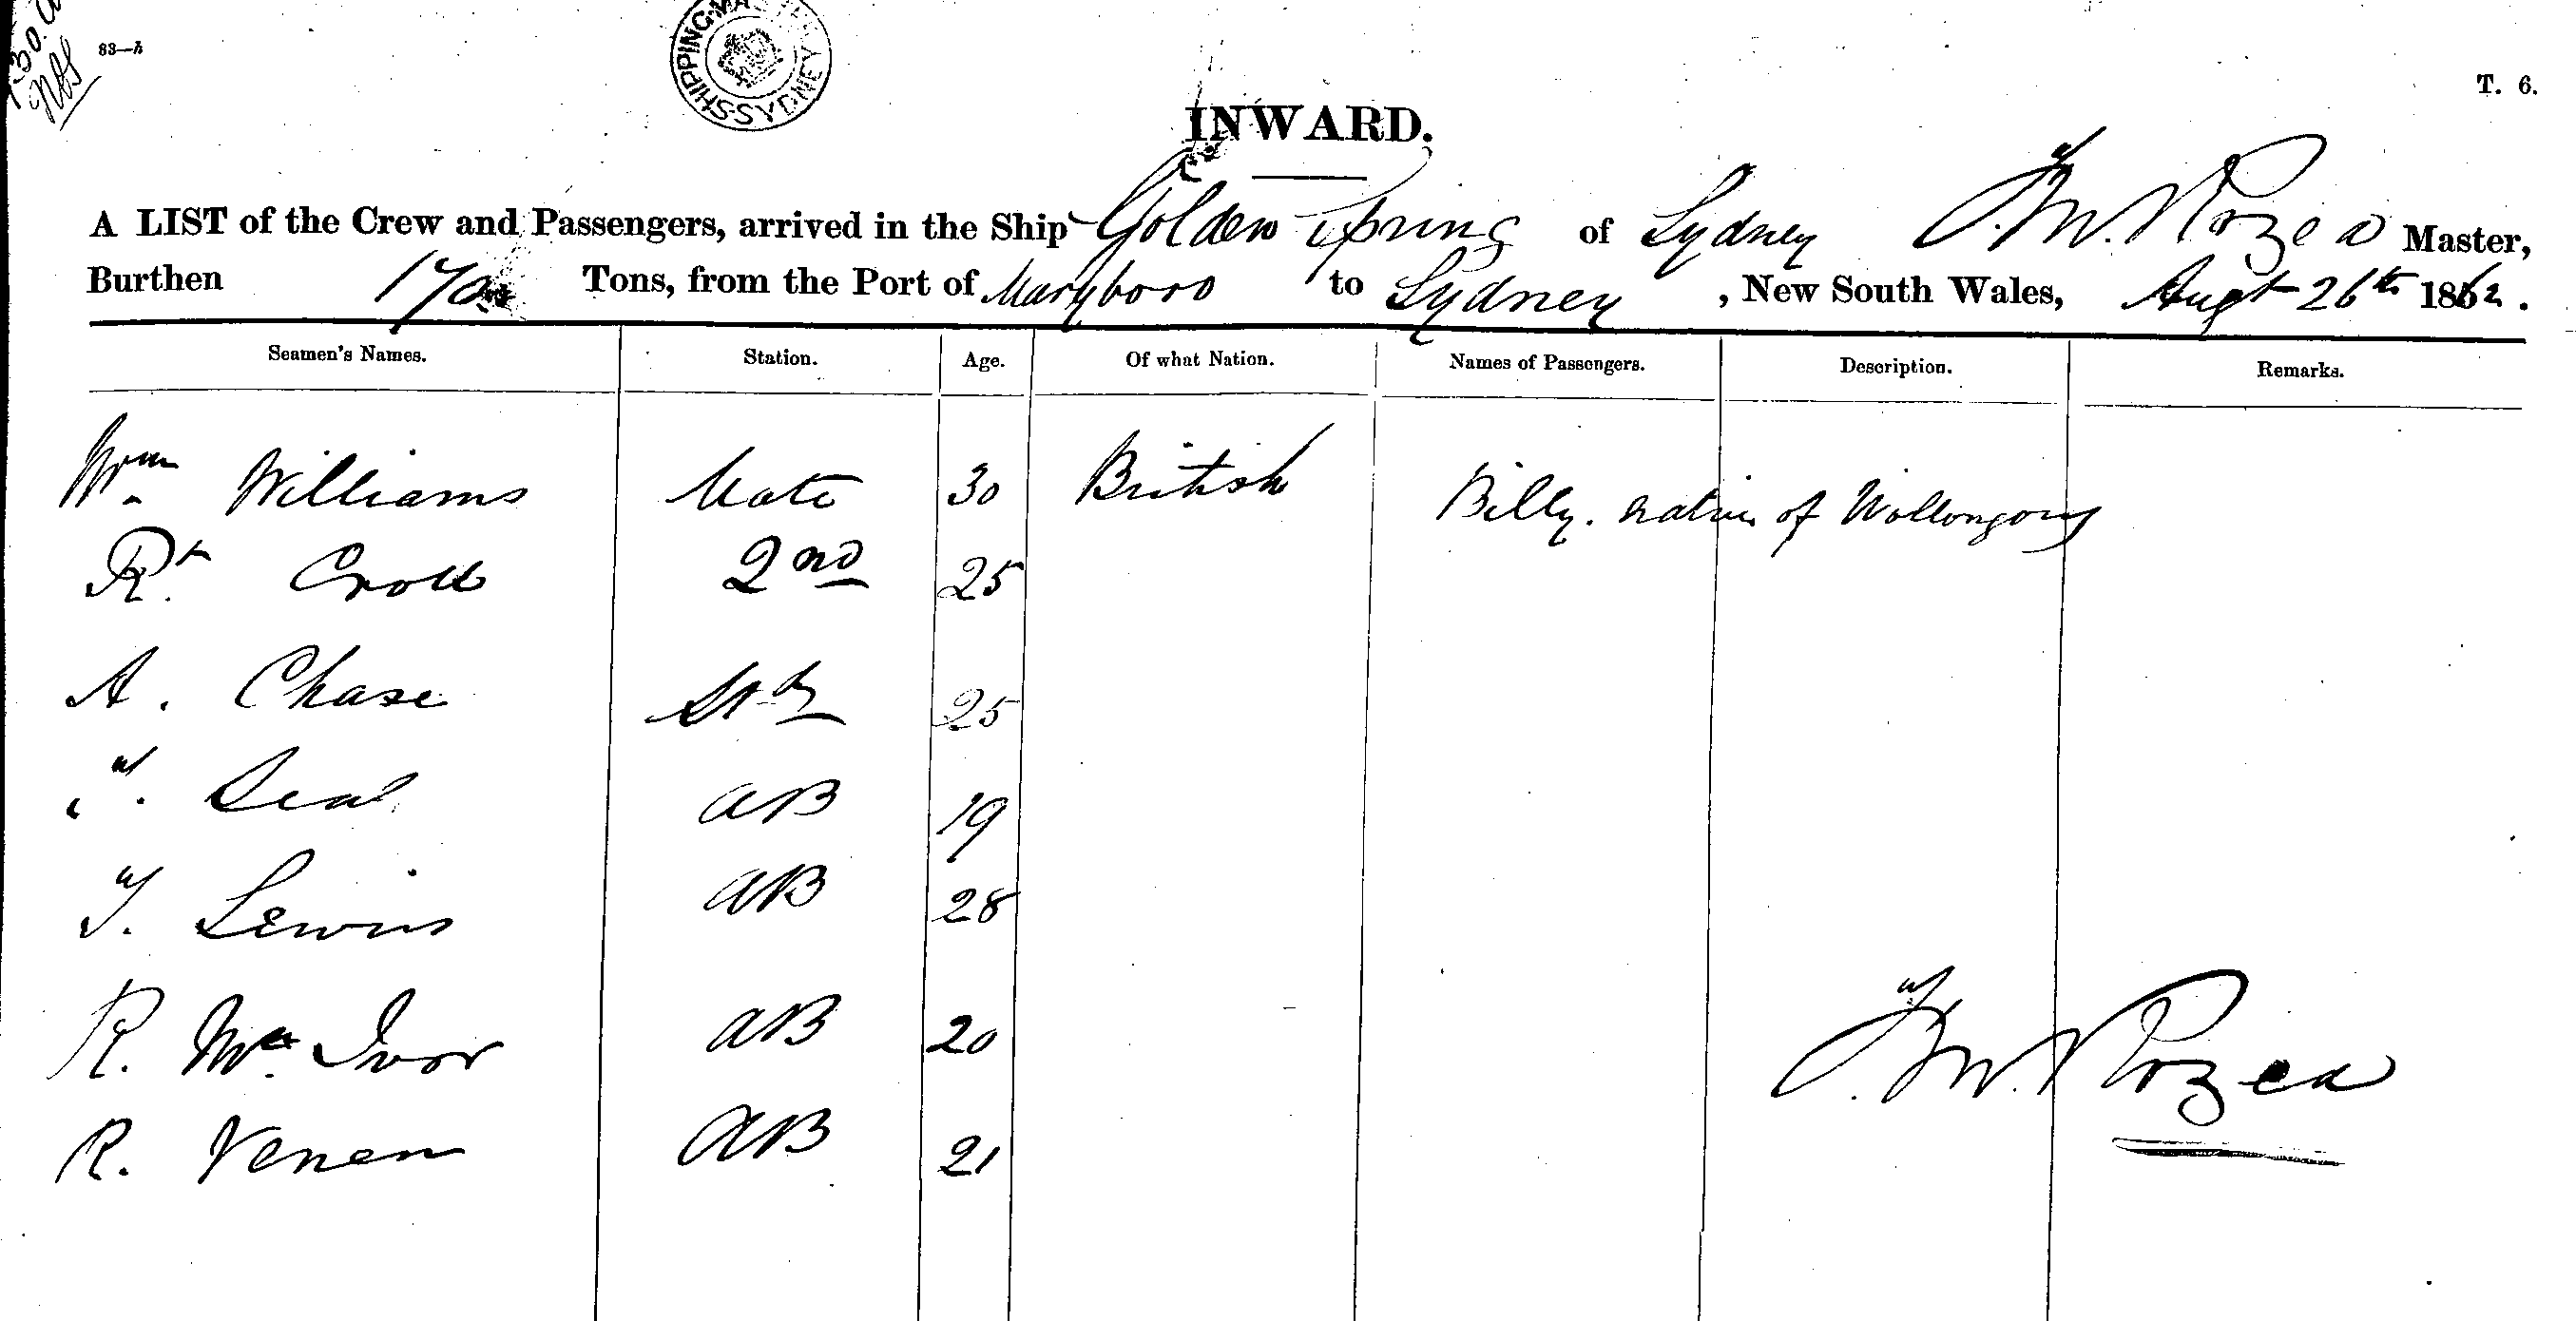 83—h
SHIPPING MASTER SYDNEY
T. 6.
INWARD.
A LIST of the Crew and Passengers, arrived in the Ship Golden Spring of Sydney W. Rozea Master,
Burthen 170 Tons, from the Port of Maryboro to Sydney, New South Wales, Augt 26th 1862.
Seamen's Names. Station. Age. Of what Nation. Names of Passengers. Description. Remarks.
Wm Williams Mate 30 British Billy. native of Wollongong
Rt Croll 2nd 25
A. Chase Std 25
Deal AB 19
T. Lewis AB 28
R. Mc Ivor AB 20
W. Rozea
R. Venen AB 21